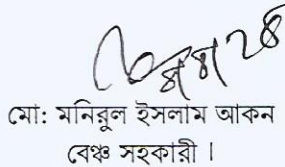 মো: মনিরুল ইসলাম আকন
বেঞ্চ সহকারী।